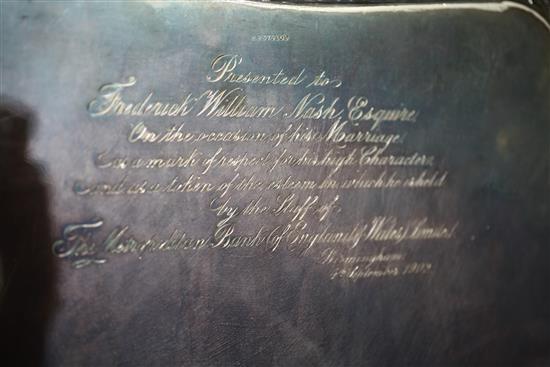 Presented to
Frederick William Nash Esquire,
On the occasion of his Marriage,
as a mark of respect for his high Character,
and as a token of the esteem in which he is held
by the Staff of
The Metropolitan Bank (of England & Wales) Limited.
Birmingham
September 1902